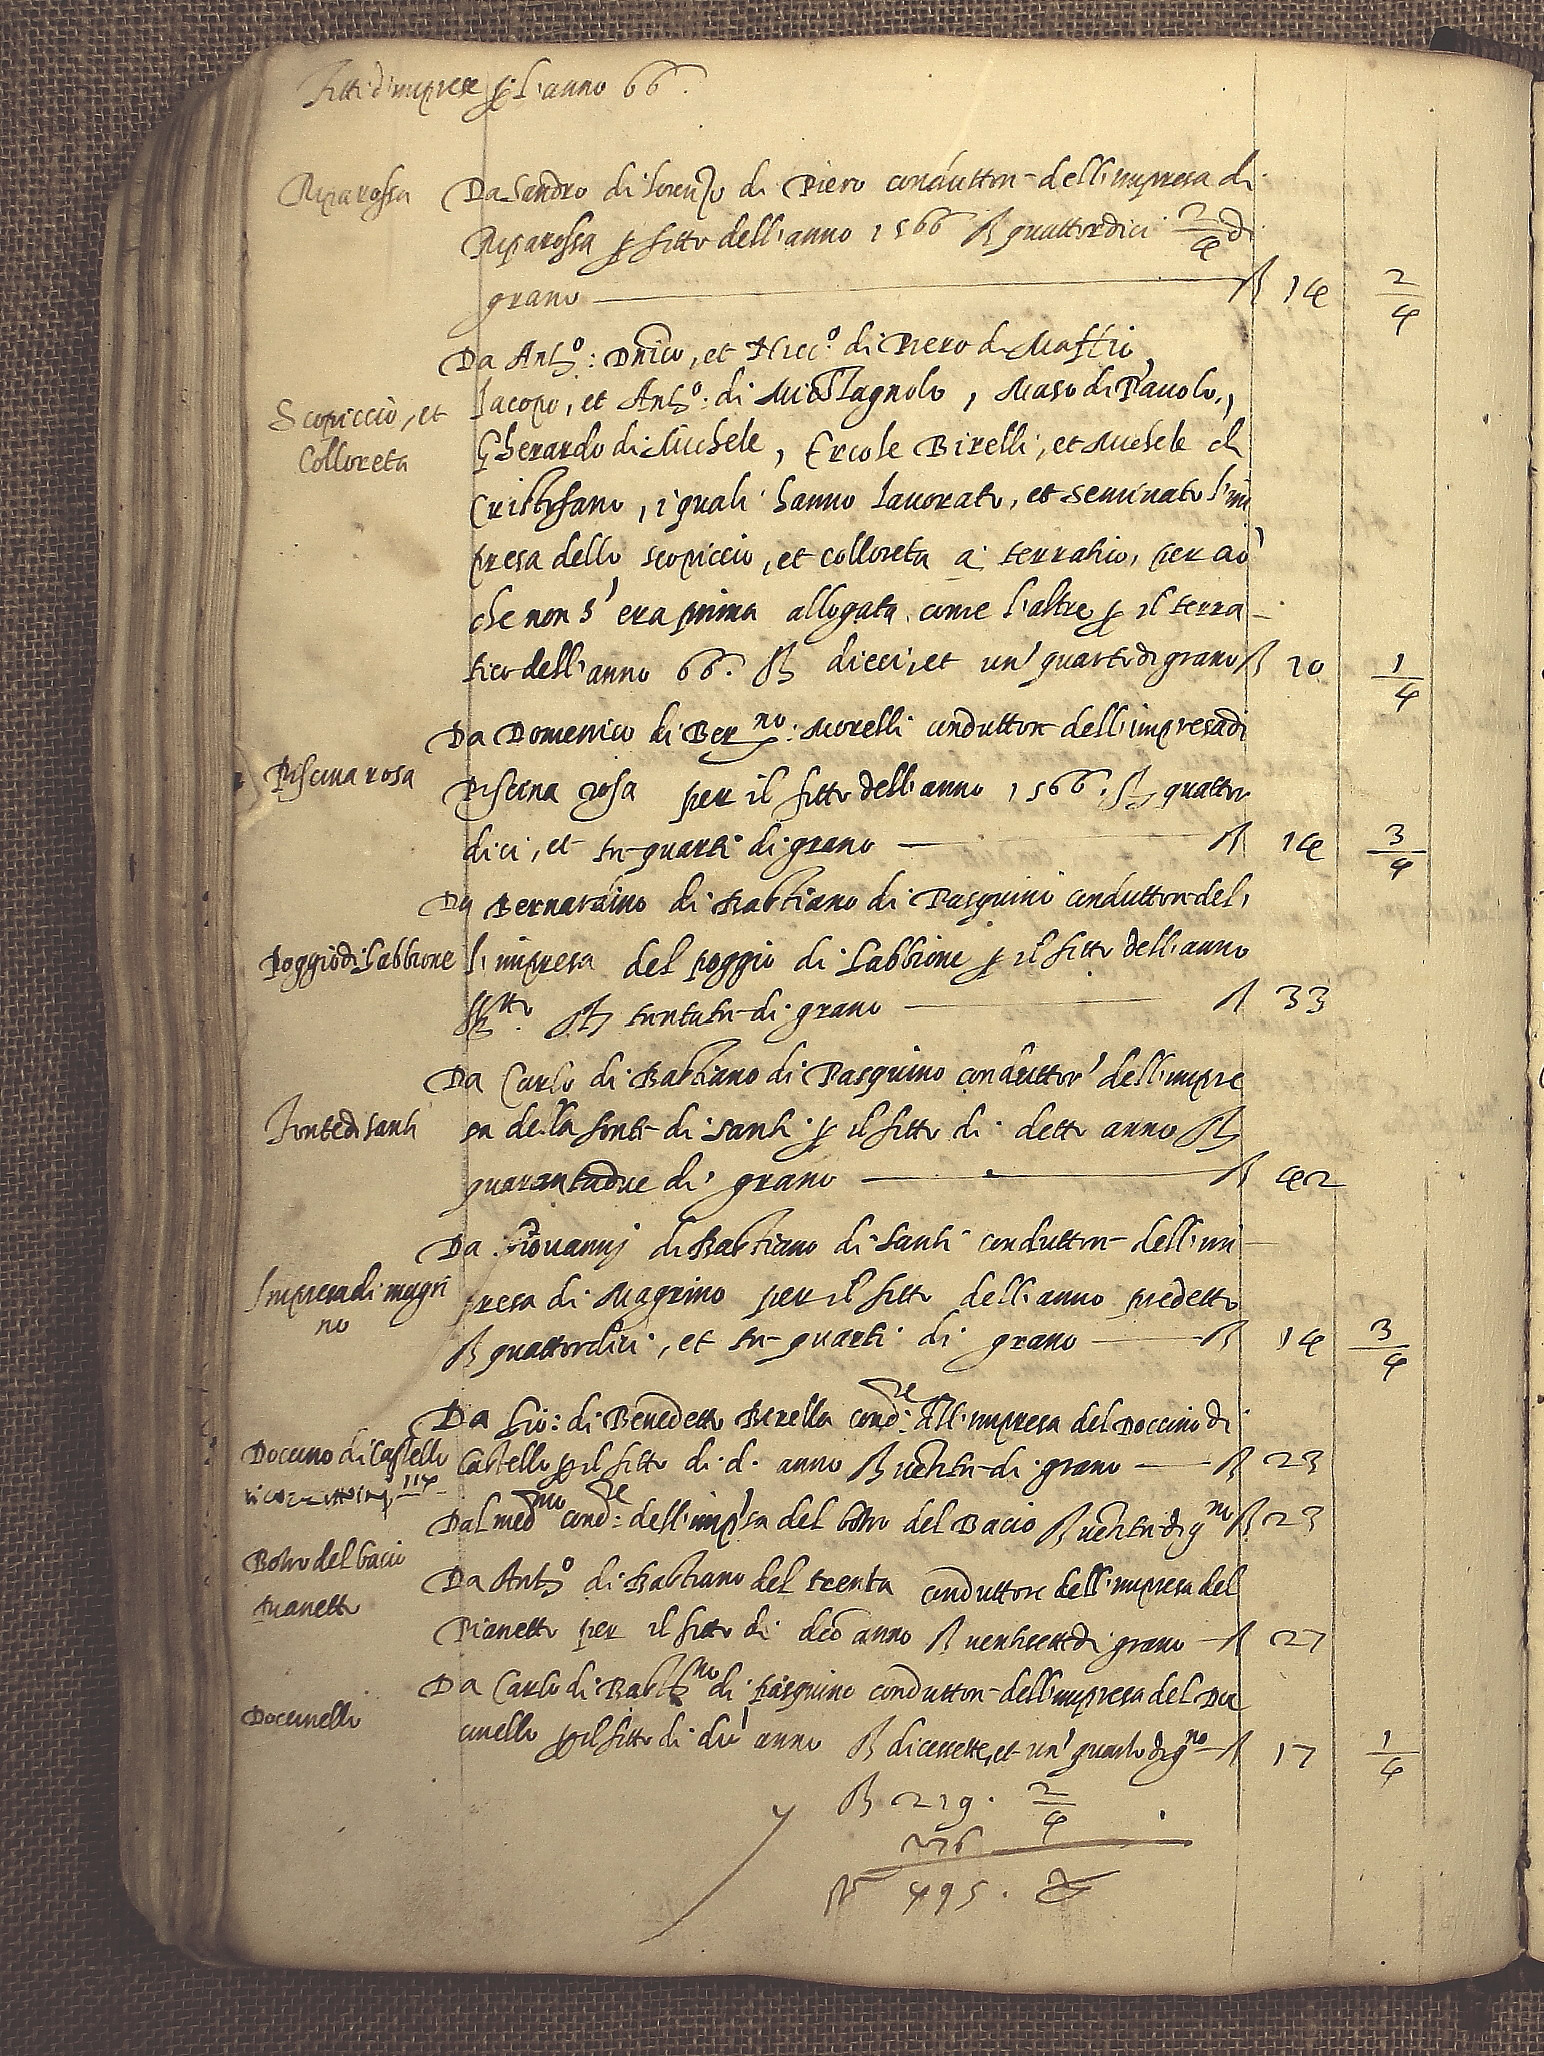 Fitti d'imprese p l'anno 66.
Riparossa
Da Sandro di Lorenzo di Piero conduttor dell'impresa di
Riparossa p fitto dell'anno 1566 R quattordici 2/4 di
grano R 14 2/4
Scopiccio, et
Colloreta
Da Ant.o: Dnico, et Nicc.o di Piero di Maffio,
Jacopo, et Ant.o: di Michelagnolo, Maso di Pavolo,
Gherardo di Michele, Ercole Birelli, et Michele di
Cristofano, i quali hanno lavorato, et seminato l'im
presa dello scopiccio, et colloreta a terratico, per ciò
che non s'era prima allogata come l'altre p il terra-
tico dell'anno 66. R dieci, et un' quarto di grano R 10 1/4
Piscina rosa
Da Domenico di Ber.no: Morelli conduttore dell'impresa di
Piscina rosa per il fitto dell'anno 1566. R quattor
dici, et tre quarti di grano R 14 3/4
Poggio di Sabbione
Da Bernardino di Bastiano di Pasquino conduttor del,
l'impresa del poggio di Sabbione p il fitto dell'anno
R trentatre di grano R 33
Fonte di Santi
Da Carlo di Bastiano di Pasquino conduttor' dell'impre
sa della fonte di Santi p il fitto di detto anno R
quarantadue di grano R 42
Impresa di magri
no
Da Giovannj di Bastiano di Santi conduttor dell'im-
presa di Magrino per il fitto dell'anno predetto
R quattordici, et tre quarti di grano R 14 3/4
Doccino di Castello
114
Da Gio: di Benedetto Birella cond.re dell'impresa del Doccino di
Castello p il fitto di d. anno R ventitre di grano R 23
Botro del bacio
Dal med.mo cond.re dell'imp'sa del botro del Bacio R ventitre di g.no R 23
Pianetto
Da Ant.o di Bastiano del trenta conduttore dell'impresa del
Pianetto per il fitto di dco anno R ventisette di grano R 27
Doccinello
Da Carlo di Bast.no di Pasquino conduttor dell'impresa del Doc
cinello p il fitto di dco anno R dicessette, et un' quarto di g.no R 17 1/4
R 219. 2/4
276
R 495. 2/4